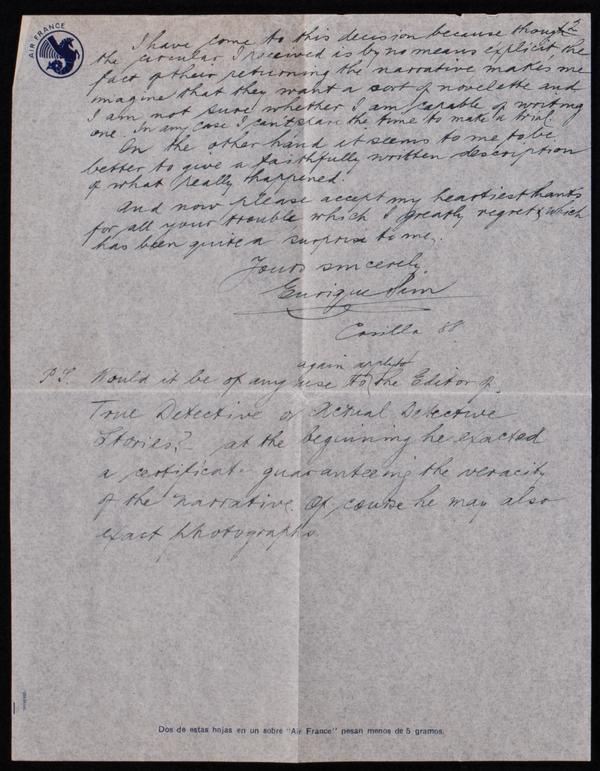 AIR FRANCE
2
I have come to this decision because though
the circular I received is by no means explicit, the
fact of their returning the narrative makes me
imagine that they want a sort of novelette and
I am not sure whether I am capable of writing
one. In any case I can't spare the time to make a trial.
On the other hand it seems to me to be
better to give a faithfully written description
of what really happened.
And now please accept my heartiest thanks
for all your trouble which I greatly regret & which
has been quite a surprise to me.
Yours sincerely,
Enrique
Casilla 88
again apply to
P.S. Would it be of any use to the Editor of
True Detective or Actual Detective
Stories? at the beginning he exacted
a certificate guaranteeing the veracity
of the narrative. Of course he may also
exact photographs
Dos de estas hojas en un sobre "Air France" pesan menos de 5 gramos.